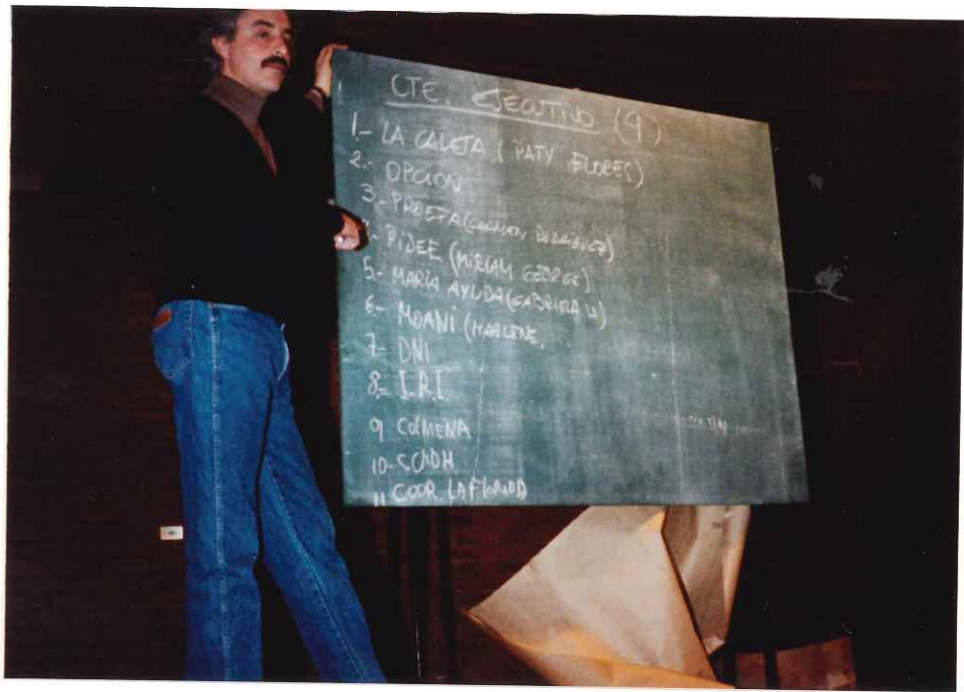 CTE. EJECUTIVO (9)
1.- LA CALETA (PATY FLORES)
2.- OPCION
3.- PRODEFA (CARMEN RODRIGUEZ)
- PIDEE (MIRIAM GEORGE)
5.- MARIA AYUDA (GABRIELA U)
6.- MOANI (MARLENE,
7- DNI
8.- I.R.I.
9 COLMENA
10- CCHDH
11 COOR. LA FLORIDA